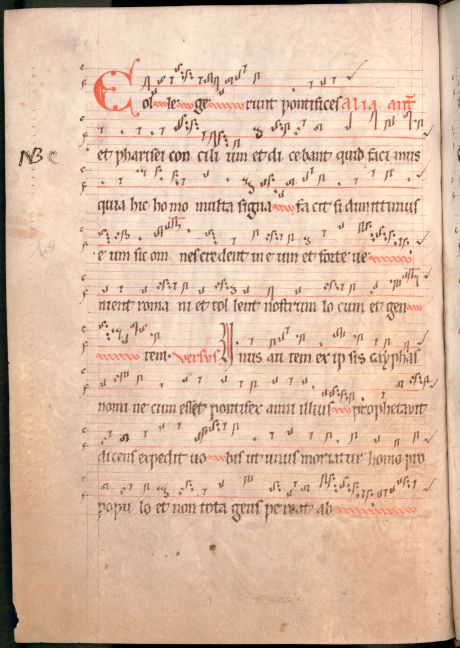 Collegerunt pontifices Alia ant
et pharisei con cili um et di cebant quid faci mus
quia hic ho mo multa signa fa cit si dimittimus
e um sic om nes credent in e um et forte ve
nient roma ni et tol lent nostrum lo cum et gen
tem. versus Unus au tem ex ip sis cayphas
nomi ne cum esset pontifex anni illius prophetavit
dicens expedit vo bis ut unus moriatur homo pro
popu lo et non tota gens pereat ab